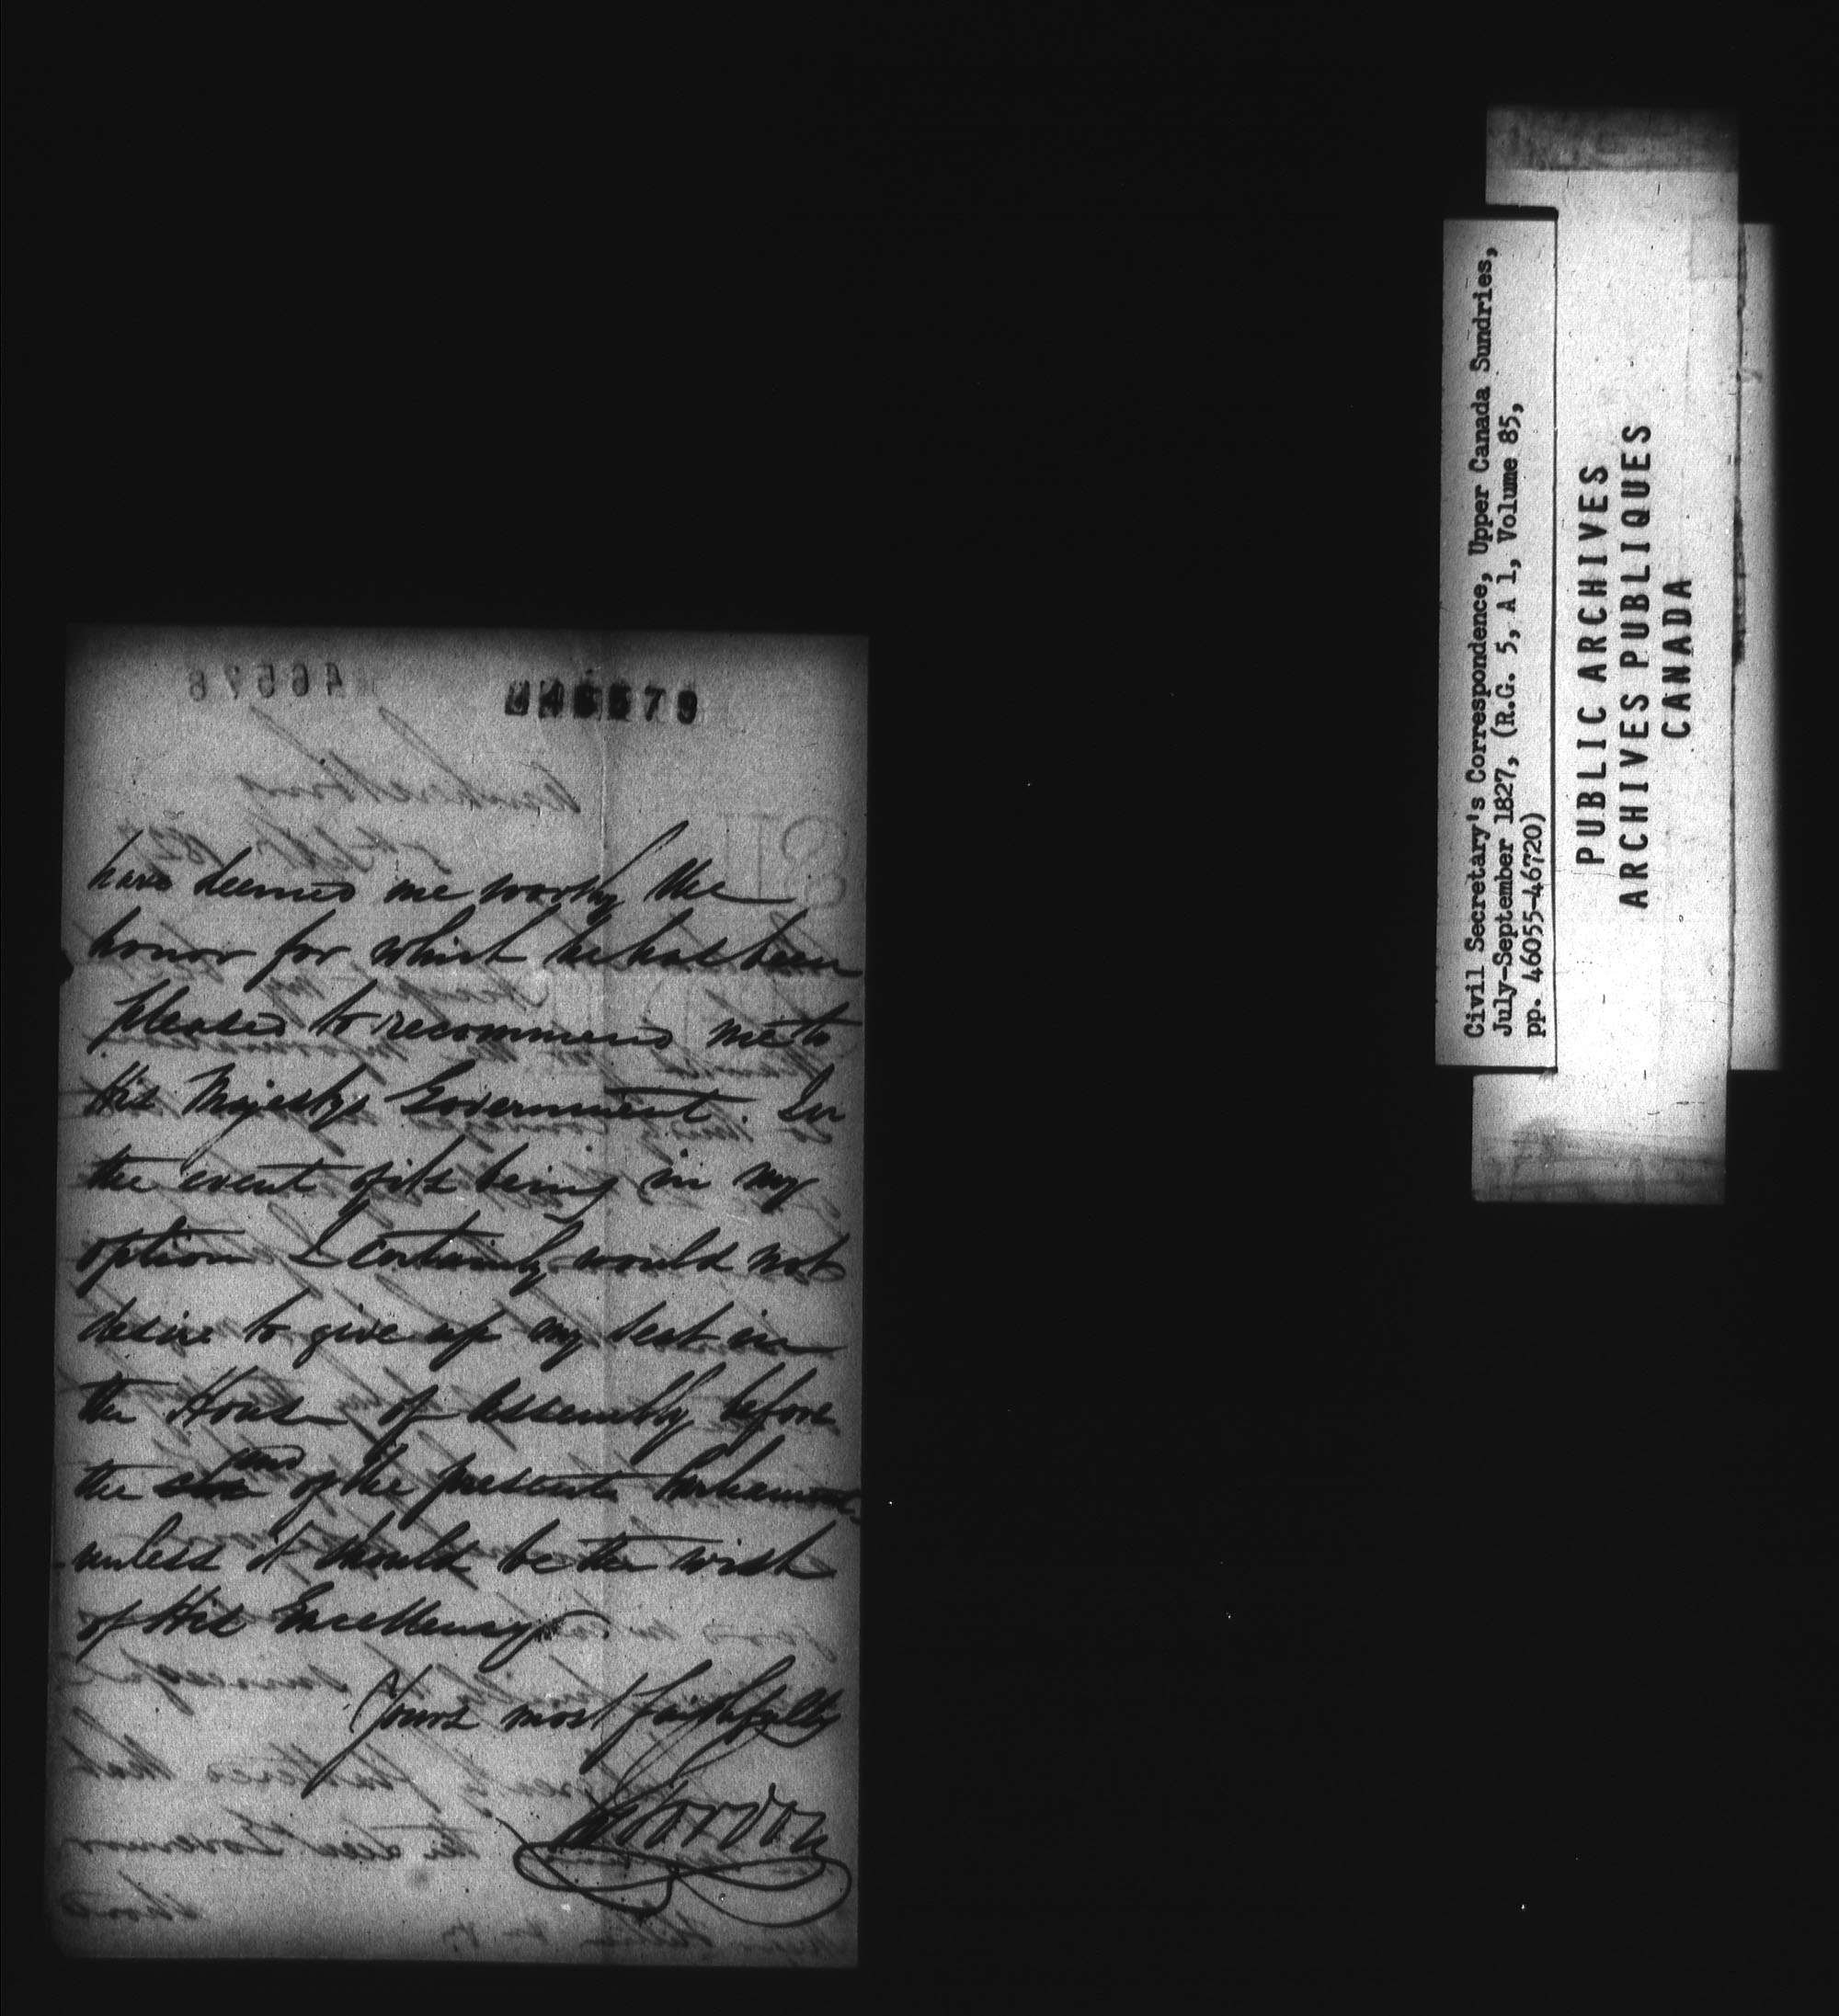 46579
have deemed me worthy the
honor for which he has been
pleased to recommend me to
His Majestys Government. In
the event of its being in my
option I certainly would not
desire to give up my seat in
the House of Assembly before
the end of the present Parliament
unless it should be the wish
of His Excellency.
Yours most faithfully
Civil Secretary's Correspondence, Upper Canada Sundries,
July-September 1827, (R.G. 5, A 1, Volume 85,
pp. 46055-46720)
PUBLIC ARCHIVES
ARCHIVES PUBLIQUES
CANADA